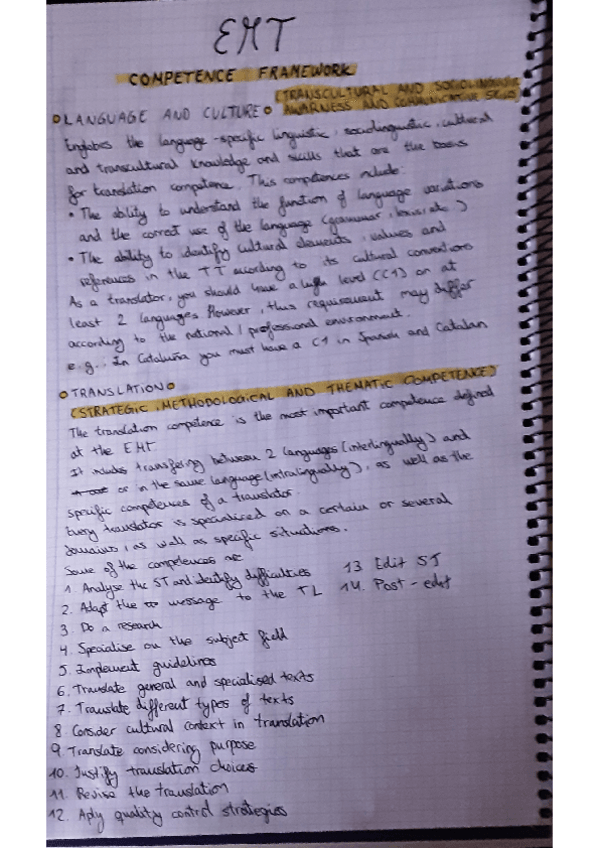 EMT
COMPETENCE FRAMEWORK
(TRANSCULTURAL AND SOCIOLINGUISTIC
LANGUAGE AND CULTURE AWARNESS AND COMMUNICATIVE SKILLS)
Englobes the language-specific linguistic, sociolinguistic, cultural
and transcultural knowledge and skills that are the basis
for translation competence. This competences include:
• The ability to understand the function of language variations
and the correct use of the language (grammar, lexis, etc)
• The ability to identify cultural elements, values and
references in the TT according to its cultural conventions
As a translator, you should have a high level (C1) on at
least 2 languages However, this requirement may differ
according to the national / professional environment.
e.g.: In Cataluña you must have a C1 in Spanish and Catalan
TRANSLATION
(STRATEGIC, METHODOLOGICAL AND THEMATIC COMPETENCE)
The translation competence is the most important competence defined
at the EMT.
It includes transfering between 2 languages (interlingually) and
or in the same language (intralingually), as well as the
specific competences of a translator.
Every translator is specialised on a certain or several
domains, as well as specific situations.
Some of the competences are
1. Analyse the ST and identify difficulties
2. Adapt the message to the TL
3. Do a research
4. Specialise on the subject field
5. Implement guidelines
6. Translate general and specialised texts
7. Translate different types of texts
8. Consider cultural context in translation
9. Translate considering purpose
10. Justify translation choices
11. Revise the translation
12. Aply quality control strategies
13 Edit ST
14. Post-edit